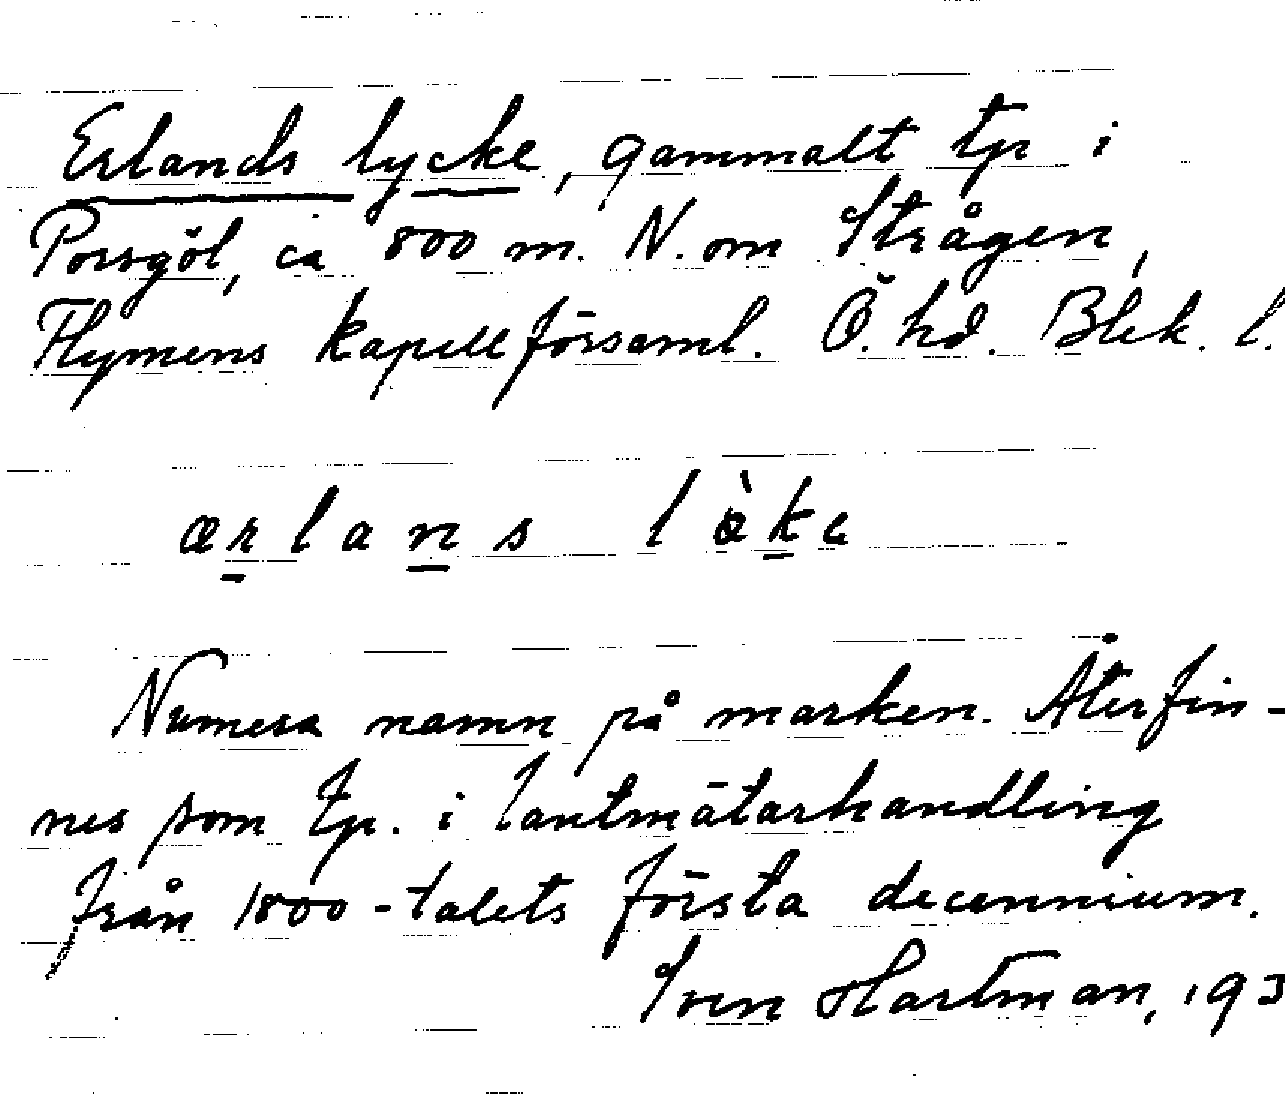 Erlands lycke, gammalt tp i
Porsgöl, ca 800 m. N. om Strågen,
Flymens kapellförsaml. Ö. hd. Blek. l.
ærlans lò̤ke
Numera namn på marken. Återfin-
nes som tp. i lantmätarhandling
från 1800-talets första decennium.
Sven Hartman, 193